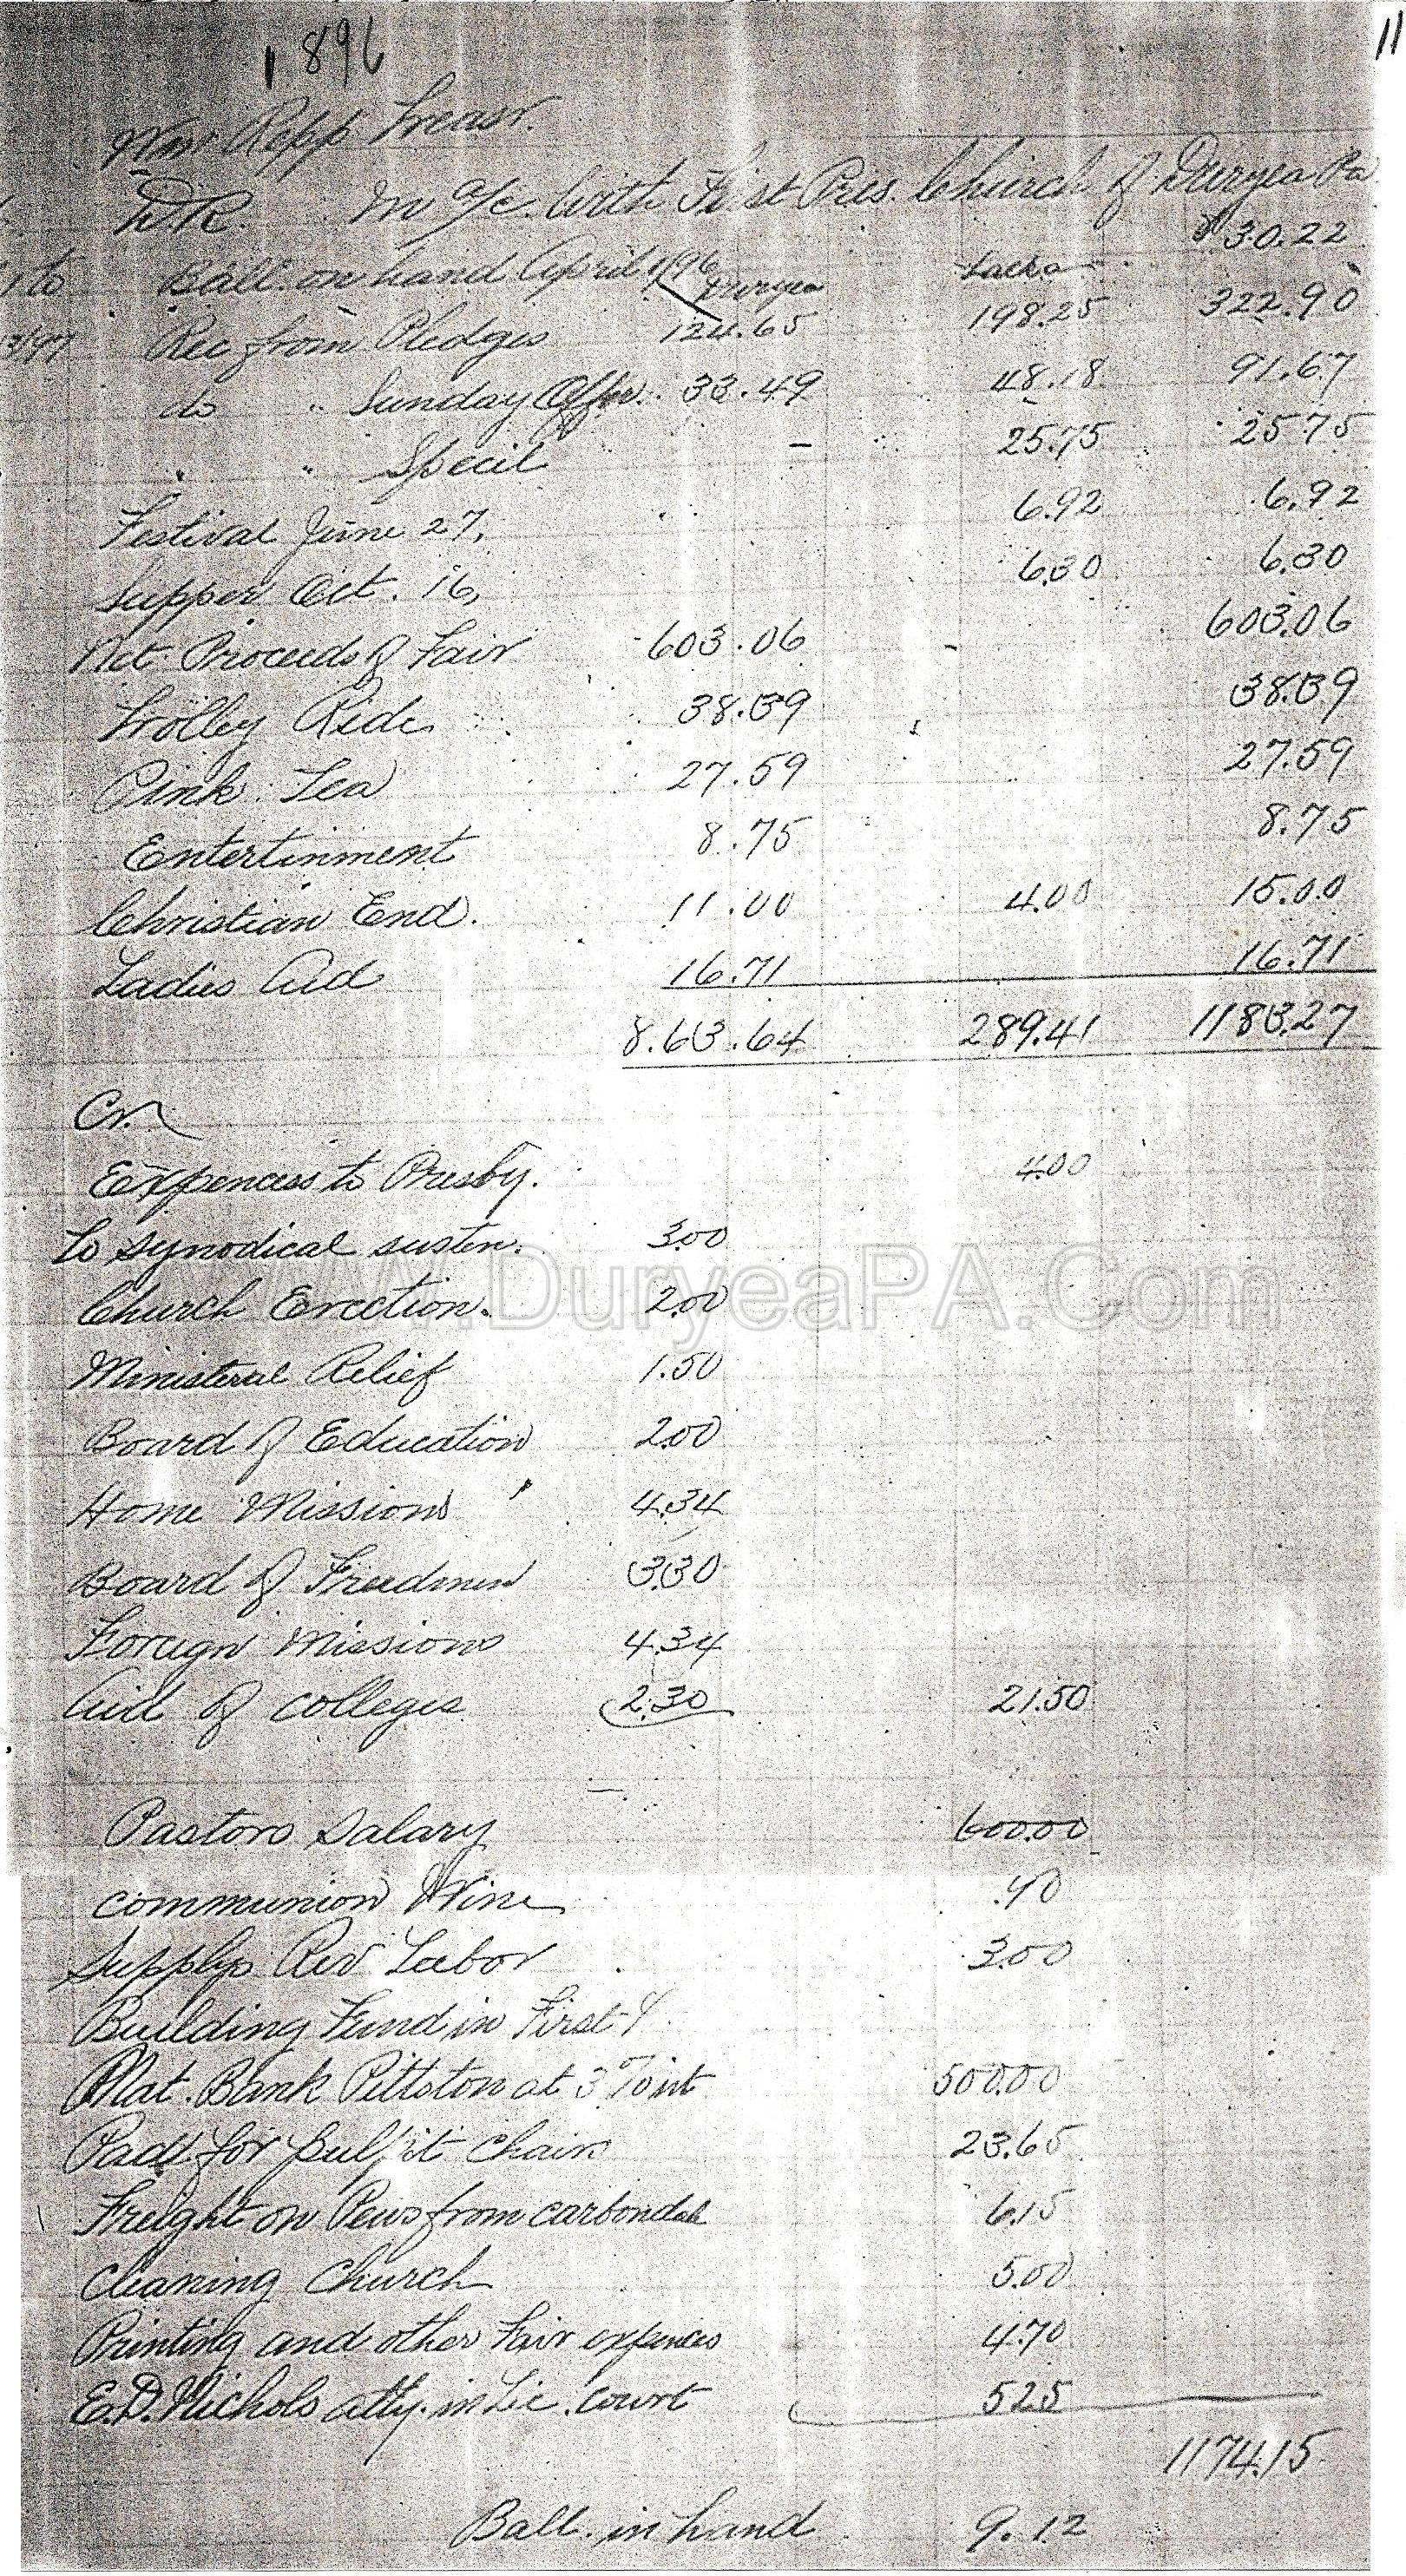 1896
11
Wm Repp Treasr.
DR. In a/c. With First Pres. Church of Duryea Pa
$30.22
to Ball. on hand April 1/96 Duryea Lacka
3/97 Rec from Pledges 124.65 198.25 322.90
do " Sunday Offr. 33.49 48.18 91.67
" " Specil - 25.75 25 75
Festival June 27, 6.92 6.92
Supper Oct. 16, 6.30 6.30
Net Proceeds of Fair 603.06 - 603.06
Trolley Ride 38.39 38.39
Pink Tea 27.59 27.59
Entertinment 8.75 8.75
Christian End. 11.00 4.00 15.00
Ladies Aid 16.71 16.71
863.64 289.41 1183.27
Cr.
Expences to Presby. 4.00
To synodical susten. 3.00
Church Erection. 2.00
WWW.DuryeaPA.Com
Ministeral Relief 1.50
Board of Education 2.00
Home Missions 4.34
Board of Freedmen 3.30
Foreign Missions 4.34
Aid of colleges 2.30 21.50
Pastors Salary 600.00
communion Wine .40
Supplys Rev Labor 3.00
Building Fund in First
Nat. Bank Pittston at 3 % int 500.00
Paid for pulpit Chairs 23.65
Freight on Pews from carbondale 6.15
cleaning Church 5.00
Printing and other Fair expences 4.70
E.D. Nichols atty. in Lic. court 5.25
1174.15
Ball. in hand 9.12